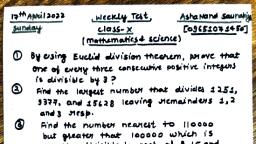 17th April 2022 Weekly Test, Ashanand
Sunday class-X
(mathematics & science)
① By using Euclid division theorem, prove that
one of every three consecutive positive integers
is divisible by 3?
② Find the largest number that divides 1251,
9377, and 15628 leaving remainders 1, 2
and 3 resp.
③ Find the number nearest to 110000
but greater than 100000 which is